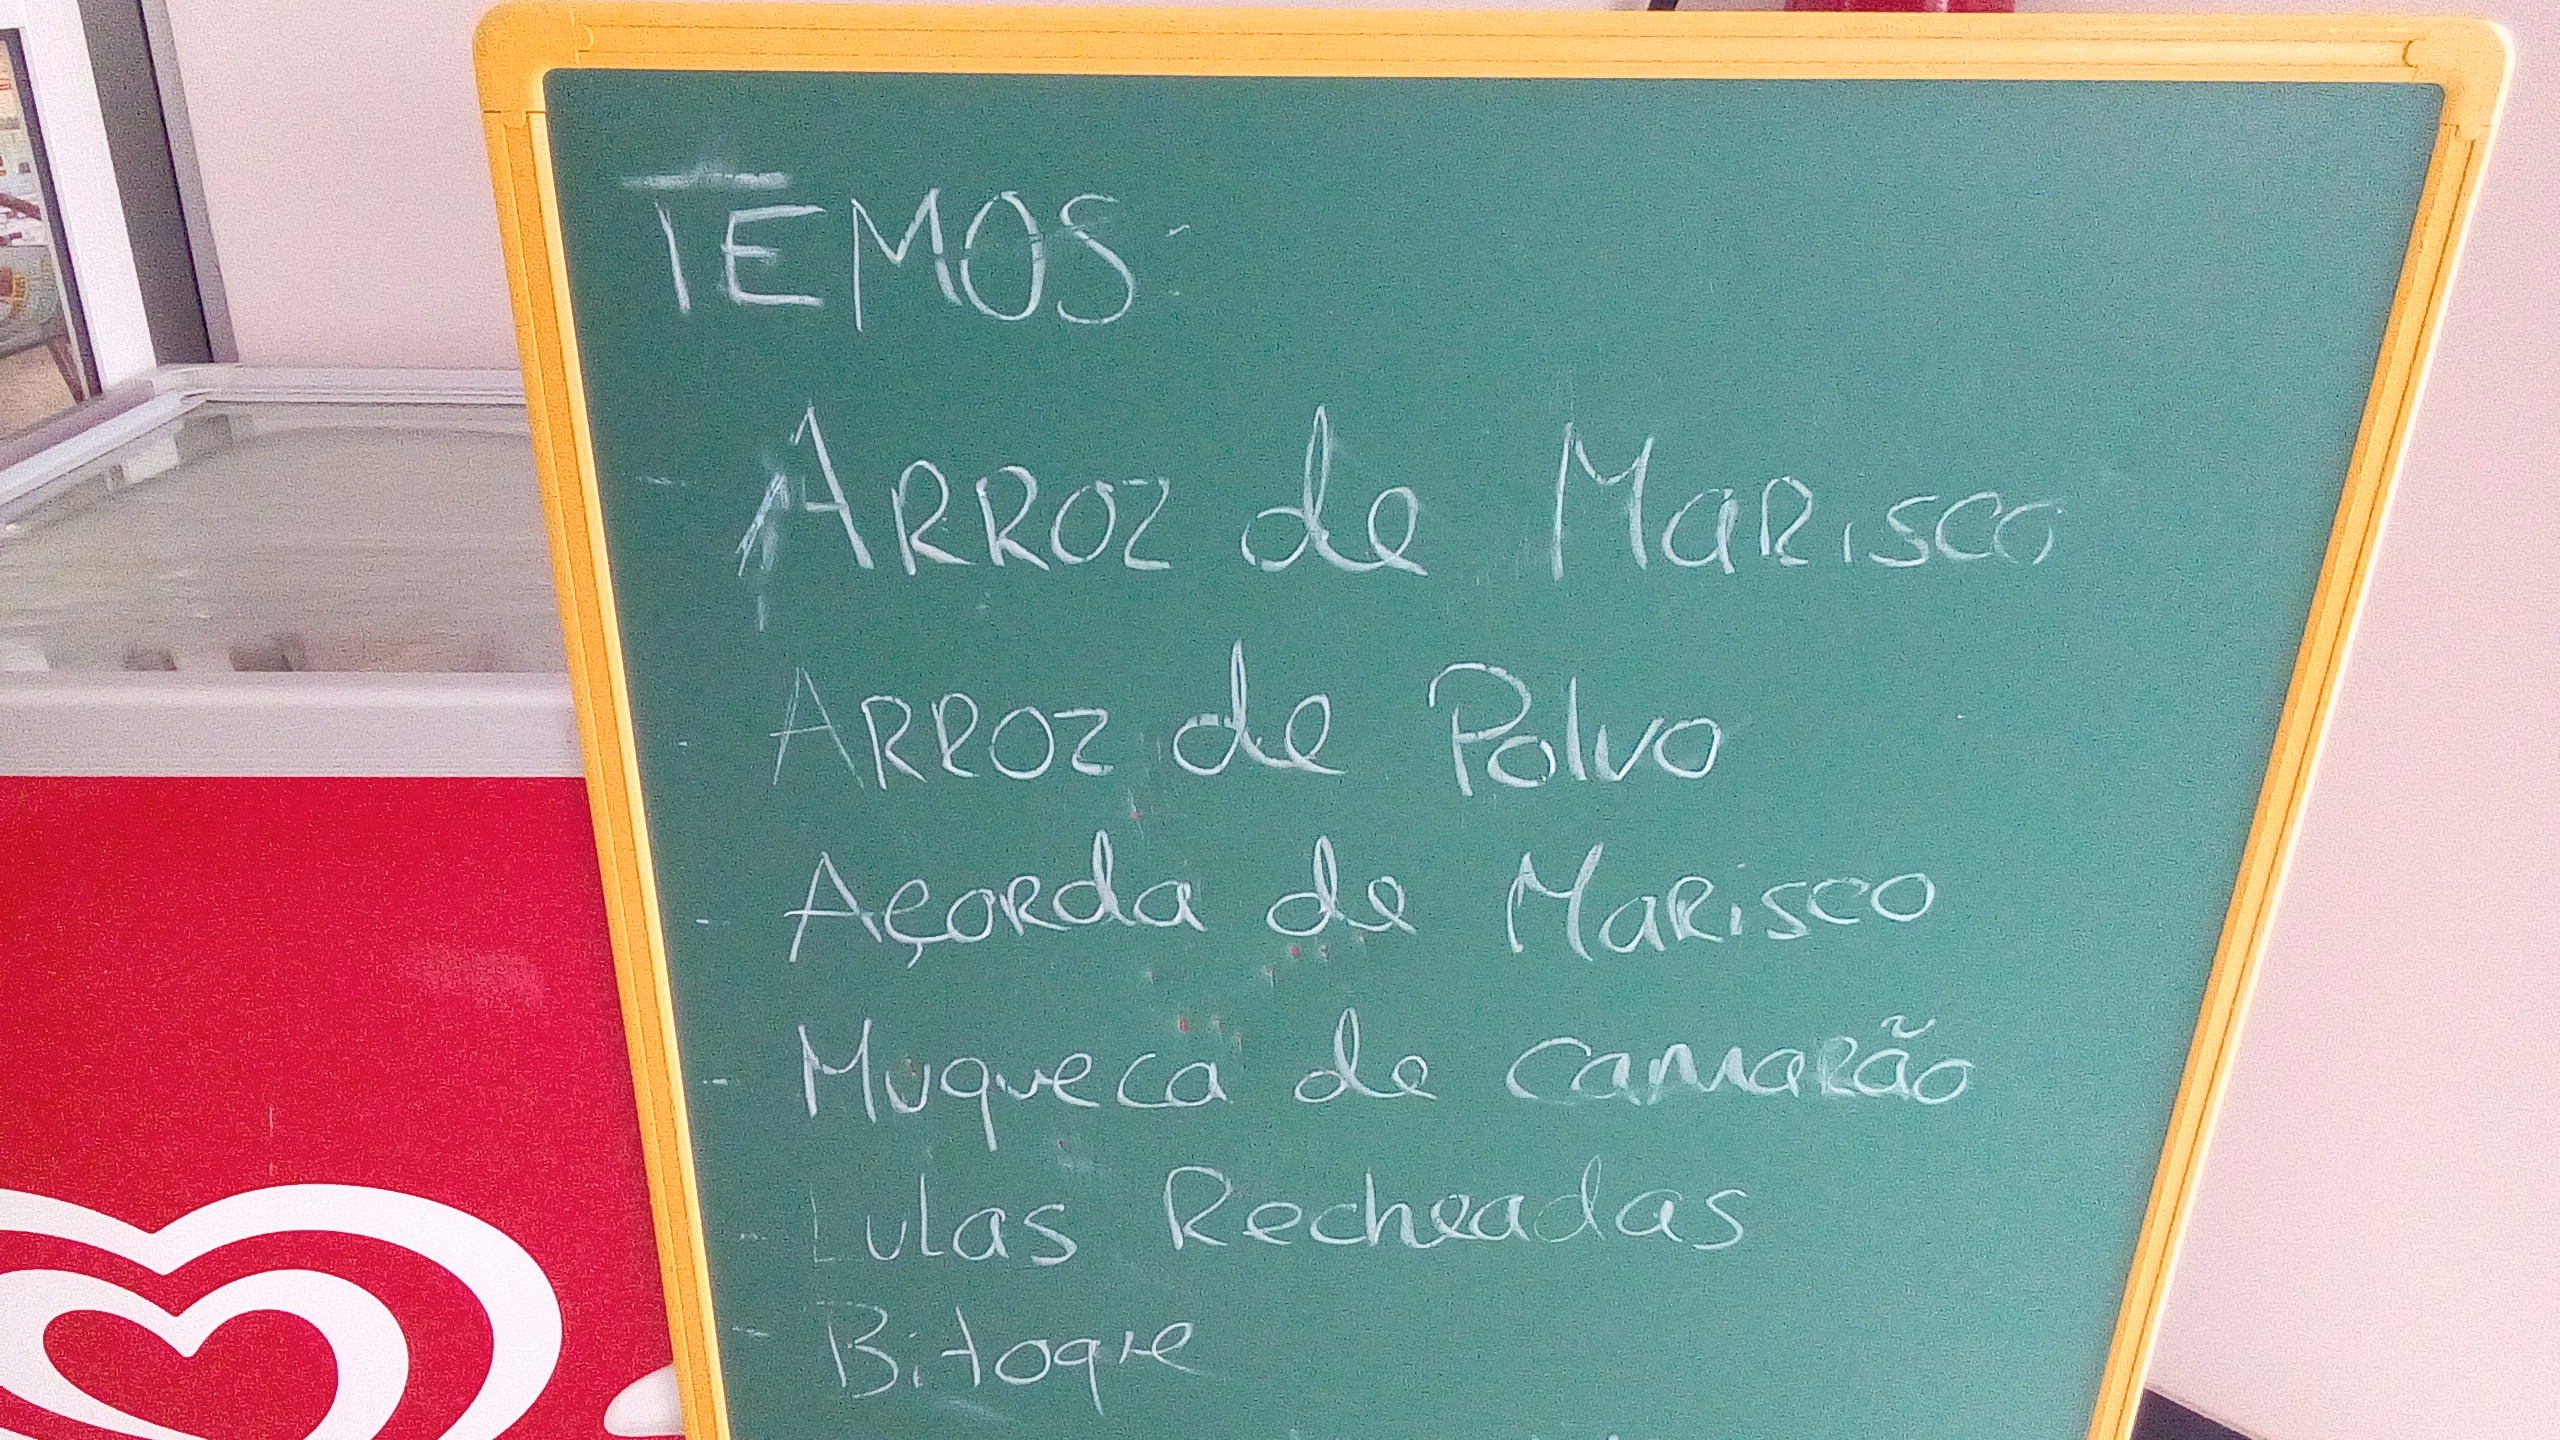 TEMOS:
- ARROZ de MARISCO
- ARROZ de Polvo
- AÇORda de MARisco
- Muqueca de Camarão
- Lulas Recheadas
- Bitoque